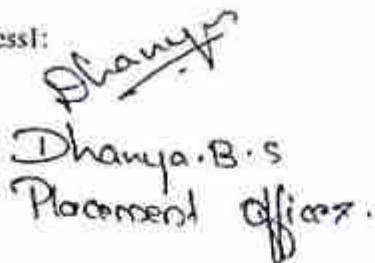 essl:
Dhanya
Dhanya.B.S
Placement Officer.